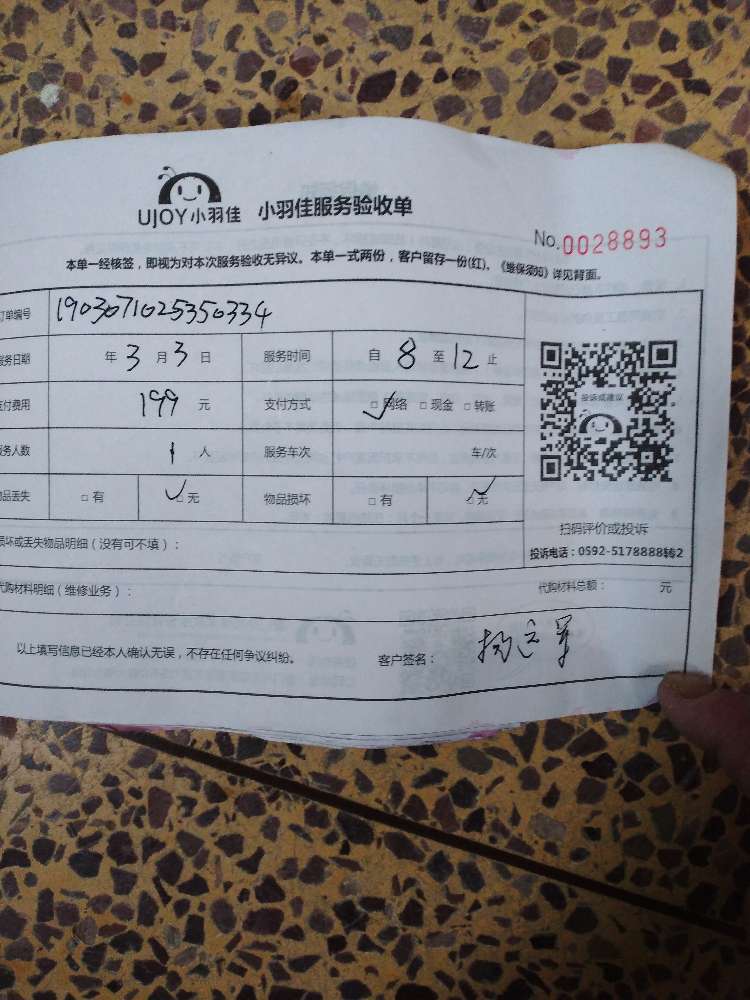 UJOY小羽佳 小羽佳服务验收单
No.0028893
本单一经核签，即视为对本次服务验收无异议。本单一式两份，客户留存一份(红)。《维保须知》详见背面。
订单编号 1903071025350334
服务日期 年 3 月 3 日 服务时间 自 8 至 12 止
支付费用 199 元 支付方式 ☑ 网络 □ 现金 □ 转账
服务人数 1 人 服务车次 车/次
物品丢失 □ 有 ☑ 无 物品损坏 □ 有 ☑ 无
投诉或建议
扫码评价或投诉
投诉电话：0592-5178888转2
损坏或丢失物品明细（没有可不填）：
代购材料明细（维修业务）： 代购材料总额： 元
以上填写信息已经本人确认无误，不存在任何争议纠纷。 客户签名：